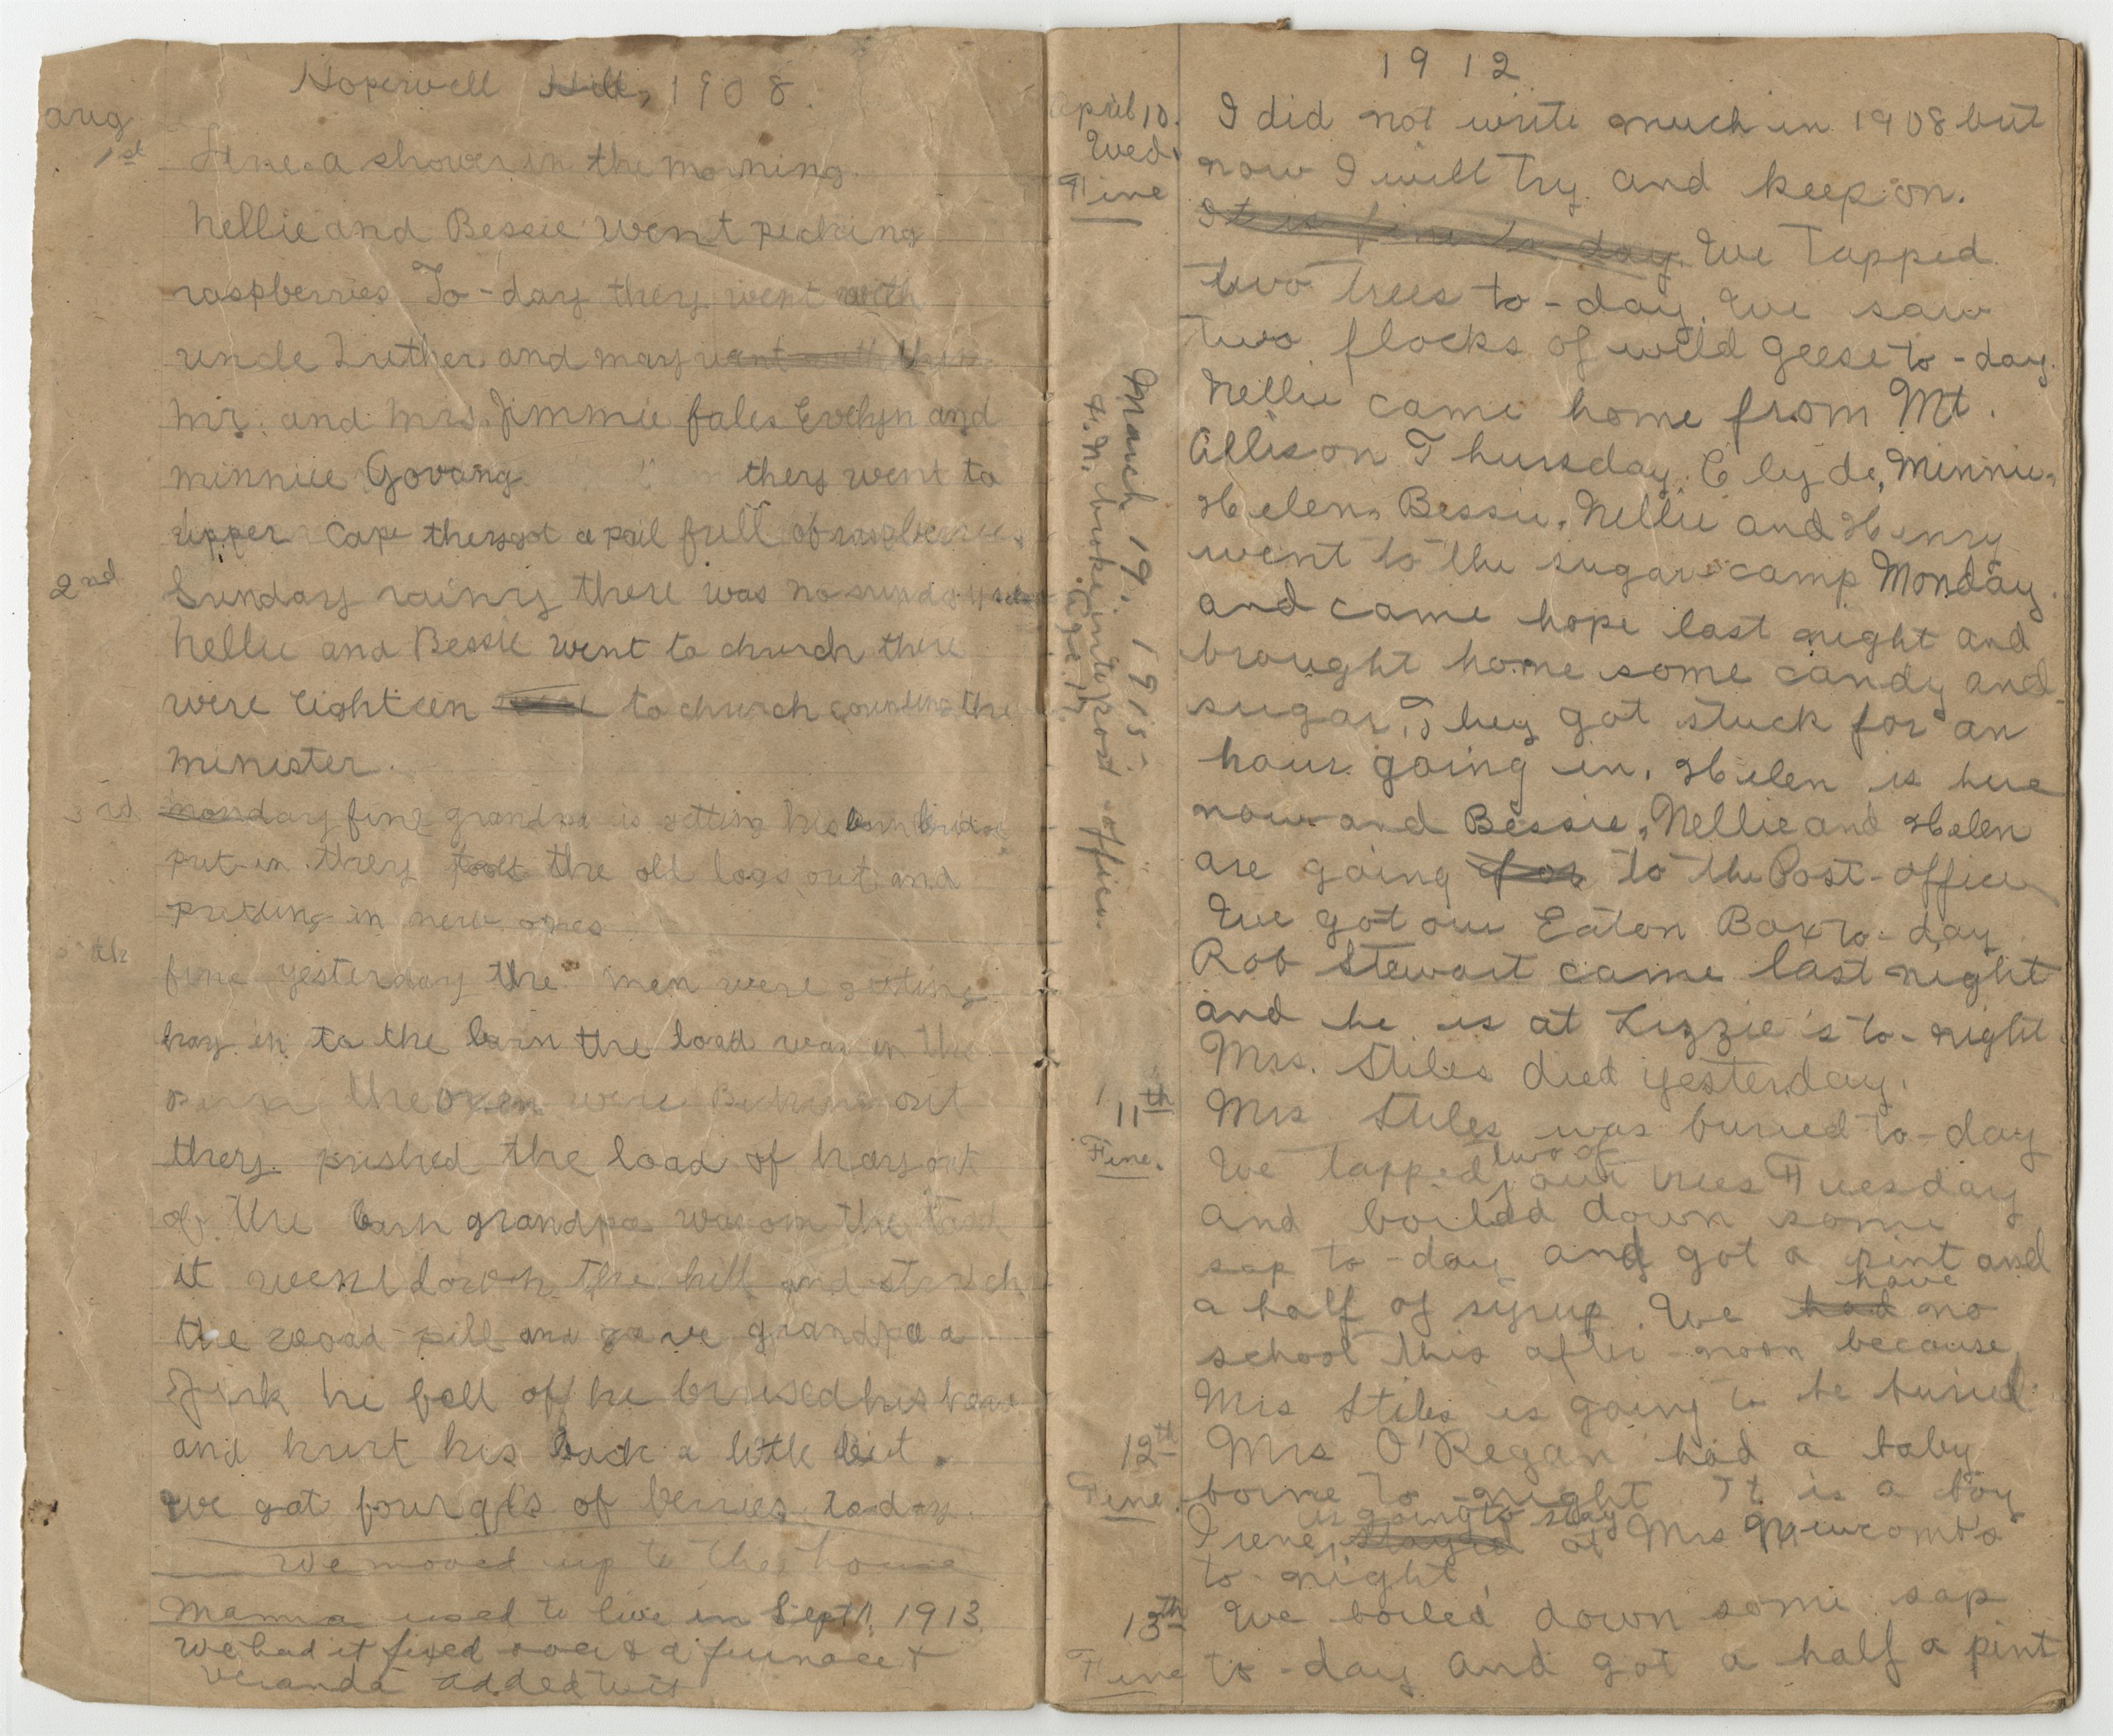 Hopewell Hill, 1908.
aug
1st fine a shower in the morning
Nellie and Bessie went picking
raspberries To-day they went with
uncle Luther and may went with them
Mr. and Mrs. Jimmie fales Evelyn and
minnie Govang they went to
upper Cape they got a pail full of raspberries.
2nd Sunday rainy there was no sunday
Nellie and Bessie went to church there
were eighteen to church counting the
minister.
3rd monday fine grandpa is getting his barn bridge
put in they took the old logs out and
putting in new ones
th fine yesterday the men were getting
hay in to the barn the load was in the
barn the oxen were Backing out
they pushed the load of hay out
of the barn grandpa was on the load
it went down the hill and struck
the wood pill and gave grandpa a
Jirk he fell off he brused his
and hurt his back a little bit.
we got four qts of berries today.
We moved up to the house
Mamma used to live in Sept 1913.
We had it fixed over & a furnace &
veranda added to it
March 19, 1915.
H. N. broke into post-office.
Age 17.
1912
April 10. I did not write much in 1908 but
Wed. now I will try and keep on.
Fine It is fine to-day. We Tapped
two trees to-day. We saw
two flocks of wild geese to-day.
Nellie came home from Mt.
Allison Thursday. Clyde, Minnie,
Helen, Bessie, Nellie and Henry
went to the sugar camp Monday.
and came hope last night and
brought home some candy and
sugar. They got stuck for an
hour going in. Helen is here
now and Bessie, Nellie and Helen
are going for to the Post-office
We got our Eaton Box to-day
Rob Stewart came last night
and he is at Lizzie's to-night.
Mrs. Stiles died yesterday.
11th Mrs Stiles was buried to-day
Fine. We tapped two of our trees Tuesday
and boiled down some
sap to-day and got a pint and
a half of syrup. We had have no
school this after-noon because
Mrs Stiles is going to be buried.
12th Mrs O'Regan had a baby
Fine. borne to-night It is a boy
Irene stayed is going to stay at Mrs Newcomb's
to-night.
13th We boiled down some sap
Fine to-day and got a half a pint